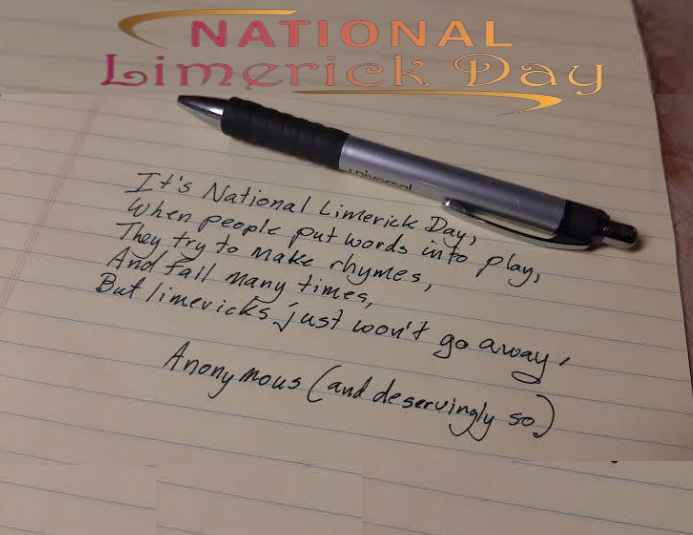 NATIONAL
Limerick Day
universal
It's National Limerick Day,
When people put words into play,
They try to make rhymes,
And fail many times,
But limericks just won't go away.
Anonymous (and deservingly so)